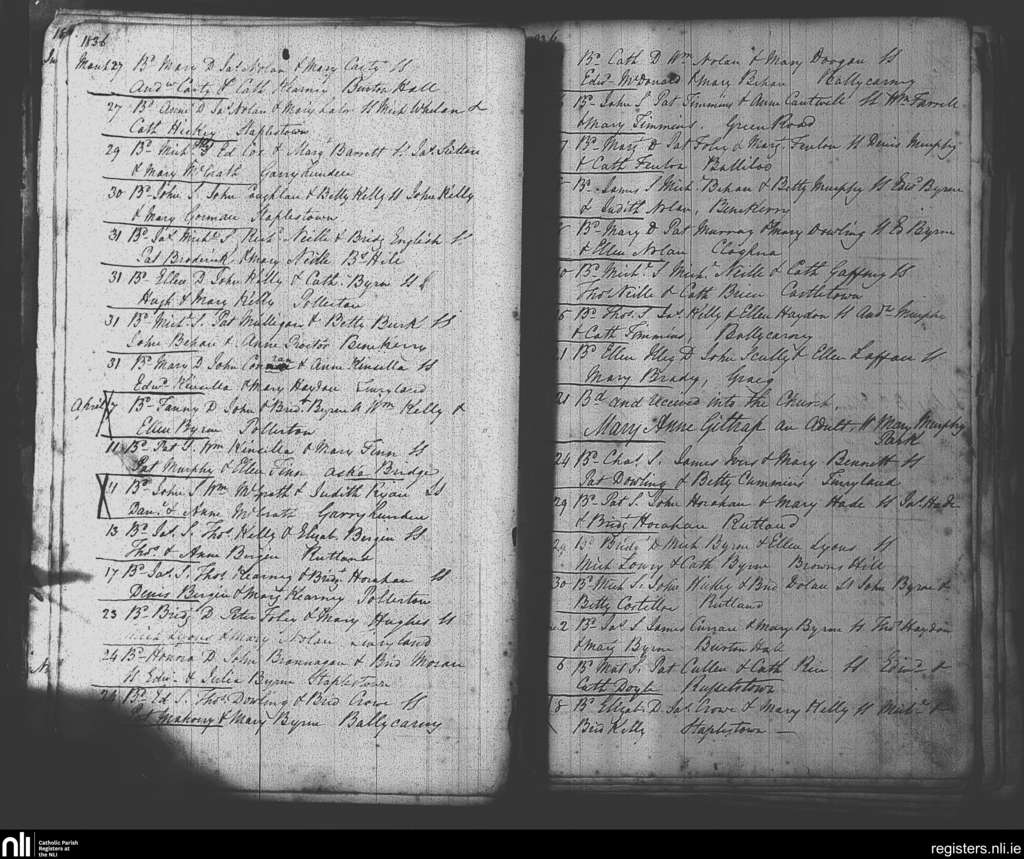 1836
March 27 Bd. Mary D Jas. Nolan & Mary Carty Ss
Andw. Carty & Cath Kearney Burton Hall
27 Bd. Anne D Jas. Nolan & Mary Lalor Ss Mich Whelan &
Cath Hickey Staplestown
29 Bd. Mich S Ed Cox & Mary Barrett Ss Jas.
& Mary McGrath Garryhundon
30 Bd. John S. John Coughlan & Betty Kelly Ss John Kelly
& Mary Gorman Staplestown
31 Bd. Jas. Michl. S. Richd. Neille & Bridg English Ss
Pat Broderick & Mary Neille Bs. Hill
31 Bd. Ellen D John Kelly & Cath. Byrne Ss
Hugh & Mary Kelly Pollerton
31 Bd. Michl. S. Pat Mulligan & Betty Burk Ss
John Behan & Anne Proctor Benekerry
31 Bd. Mary D John & Anne Kinsella Ss
Edwd. Kinsella & Mary Haydon Linnyland
April 7 Bd. Fanny D John & Bridt. Byrne Ss Wm Kelly &
Ellen Byrne Pollerton
11 Bd. Pat S. Wm Kinsella & Mary Finn Ss
Pat Murphy & Ellen Finn aska Bridge
11 Bd. John S Wm McGrath & Judith Ryan Ss
Danl. & Anne McGrath Garryhundon
13 Bd. Jas. S. Thos. Kelly & Elizab. Bergin Ss
Thos. & Anne Bergin Rutland
17 Bd. Jas. S. Thos. Kearney & Bridg. Horahan Ss
Denis Bergin & Mary Kearney Pollerton
23 Bd. Bridg D Peter Foley & Mary Hughes Ss
Mich Lyons & Mary Nolan Linnyland
24 Bd. Honora D. John Brannagan & Brid Moran
Ss Edwd. & Julia Byrne Staplestown
24 Bd. Ed S. Thos. Dowling & Brid Crowe Ss
Pat Mahony & Mary Byrne Ballycarny
Bd. Cath D Wm Nolan & Mary Doogan Ss
Edwd. McDonald & Mary Behan Ballycarny
Bd. John S. Pat Timmins & Anne Cantwell Ss Wm Farrell
& Mary Timmins. Green Road
Bd. Mary D Pat Foley & Mary Fenlon Ss Denis Murphy
& Cath Fenlon Balliloo
Bd. James S Michl. Behan & Betty Murphy Ss Edwd. Byrne
& Judith Nolan, Benekerry
Bd. Mary D Pat Murray & Mary Dowling Ss Ed Byrne
& Ellen Nolan Cloghna
Bd. Michl. S Michl. Neille & Cath Gaffney Ss
Thos. Neille & Cath Brien Castletown
Bd. Thos. S. Jas. Kelly & Ellen Haydon Ss Andw. Murphy
& Cath Timmins, Ballycarney
21 Bd. Ellen D John Scully & Ellen Laffan Ss
Mary Brady, Graeg
21 Bd. and received into the Church
Mary Anne Giltrap an Adult Ss Mary Murphy
Park
24 Bd. Chas. S. James & Mary Bennett Ss
Pat Dowling & Betty Cummins Linnyland
29 Bd. Pat S. John Horahan & Mary Hade Ss Jas. Hade
& Bridg Horahan Rutland
29 Bd. Bridg D Mich Byrne & Ellen Lyons Ss
Mich Lowry & Cath Byrne Browns Hill
30 Bd. Mich S. John & Brid Dolan Ss John Byrne &
Betty Costelloe Rutland
2 Bd. Jas. S James Curran & Mary Byrne Ss Thos. Haydon
& Mary Byrne Burton Hall
6 Bd. Mat S. Pat Cullen & Cath Ss Edwd. &
Cath Doyle Russelstown
8 Bd. Elizab. D. Jas. Crowe & Mary Kelly Ss Michl. &
Brid Kelly Staplestown
nli Catholic Parish
Registers at
the NLI
registers.nli.ie